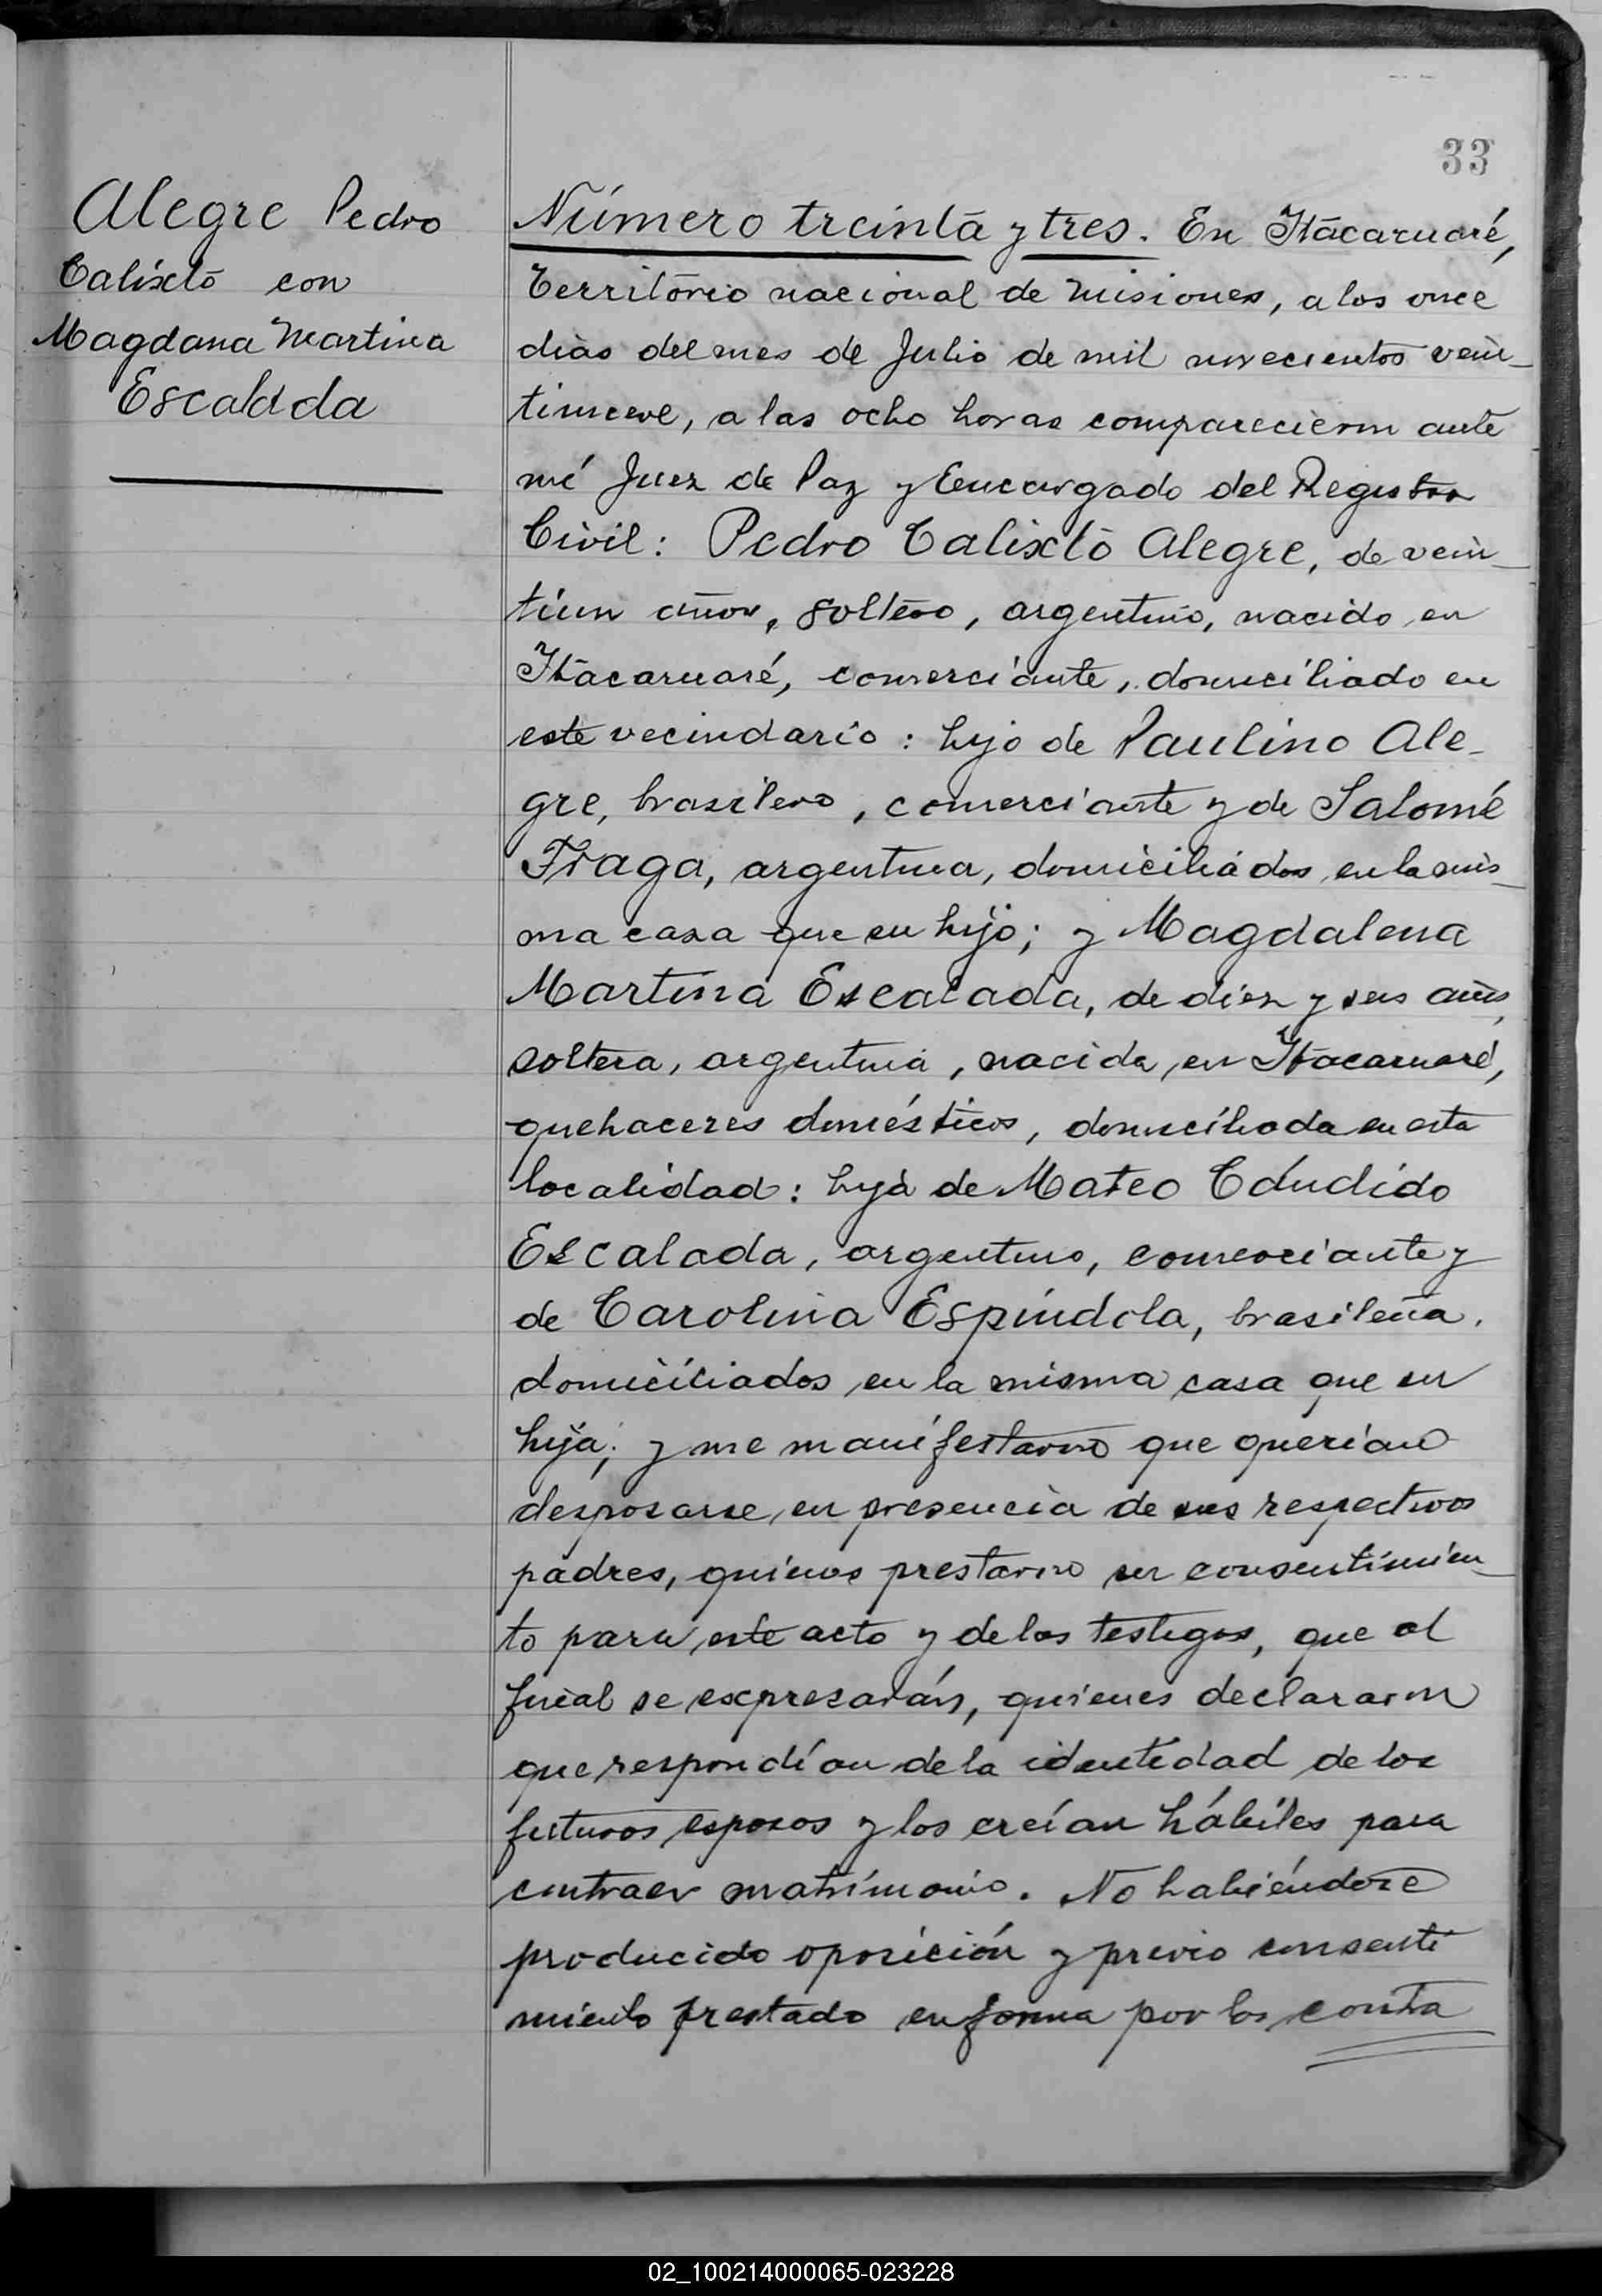 33
Alegre Pedro
Calixto con
Magdana Martina
Escaldda
Número treinta y tres. En Itacaruaré,
Territorio nacional de Misiones, a los once
dias del mes de Julio de mil novecientos vein-
tinueve, a las ocho horas comparecieron ante
mi Juez de Paz y Encargado del Registro
Civil: Pedro Calixto Alegre, de vein-
tiun años, soltero, argentino, nacido en
Itacaruaré, comerciante, domiciliado en
este vecindario: hijo de Paulino Ale-
gre, brasilero, comerciante y de Salomé
Fraga, argentina, domiciliados en la mis-
ma casa que su hijo; y Magdalena
Martina Escalada, de diez y seis años,
soltera, argentina, nacida en Itacaruaré,
quehaceres domésticos, domiciliada en esta
localidad: hija de Mateo
Escalada, argentino, comerciante y
de Carolina Espíndola, brasileña,
domiciliados en la misma casa que su
hija; y me manifestaron que querian
desposarse, en presencia de sus respectivos
padres, quienes prestaron su consentimien-
to para este acto y de los testigos, que al
final se expresarán, quienes declararon
que respondían de la identidad de los
futuros esposos y los creían hábiles para
contraer matrimonio. No habiéndose
producido oposición y previo consenti
miento prestado en forma por los contra
02_100214000065-023228